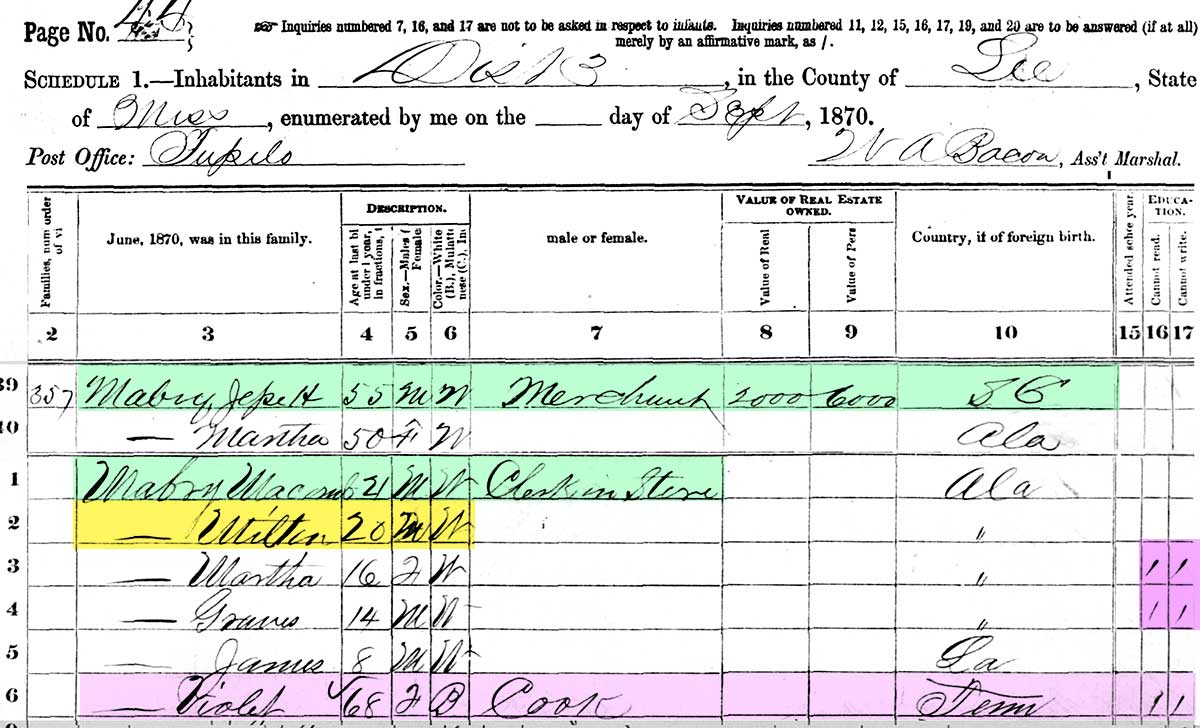 Page No. 44
☞ Inquiries numbered 7, 16, and 17 are not to be asked in respect to infants. Inquiries numbered 11, 12, 15, 16, 17, 19, and 20 are to be answered (if at all)
merely by an affirmative mark, as /.
SCHEDULE 1.—Inhabitants in Dist 3, in the County of Lee, State
of Miss, enumerated by me on the ___ day of Sept, 1870.
Post Office: Tupilo W A Bacon, Ass't Marshal.
Families, num order of vi
June, 1870, was in this family.
DESCRIPTION.
Age at last bi under 1 year, in fractions, t
Sex.—Males ( Female
Color.—White (B.), Mulatt nese (C.), In
male or female.
VALUE OF REAL ESTATE OWNED.
Value of Real
Value of Pers
Country, if of foreign birth.
Attended school year.
EDUCATION.
Cannot read.
Cannot write.
2 3 4 5 6 7 8 9 10 15 16 17
39 357 Mabry, Jepe H 55 M W Merchant 2000 6000 S C
40 — Martha 50 F W Ala
1 Mabry Macomb 21 M W Clerk in Store Ala
2 — Milton 20 M W "
3 — Martha 16 F W " / /
4 — Graves 14 M W " / /
5 — James 8 M W La
6 — Violet 68 F B Cook Tenn / /